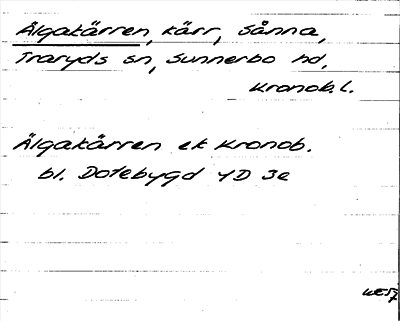 Älgakärren, kärr, Sånna,
Traryds sn, Sunnerbo hd,
Kronob.l.
Älgakärren ek Kronob.
bl. Dotebygd 4D 3e